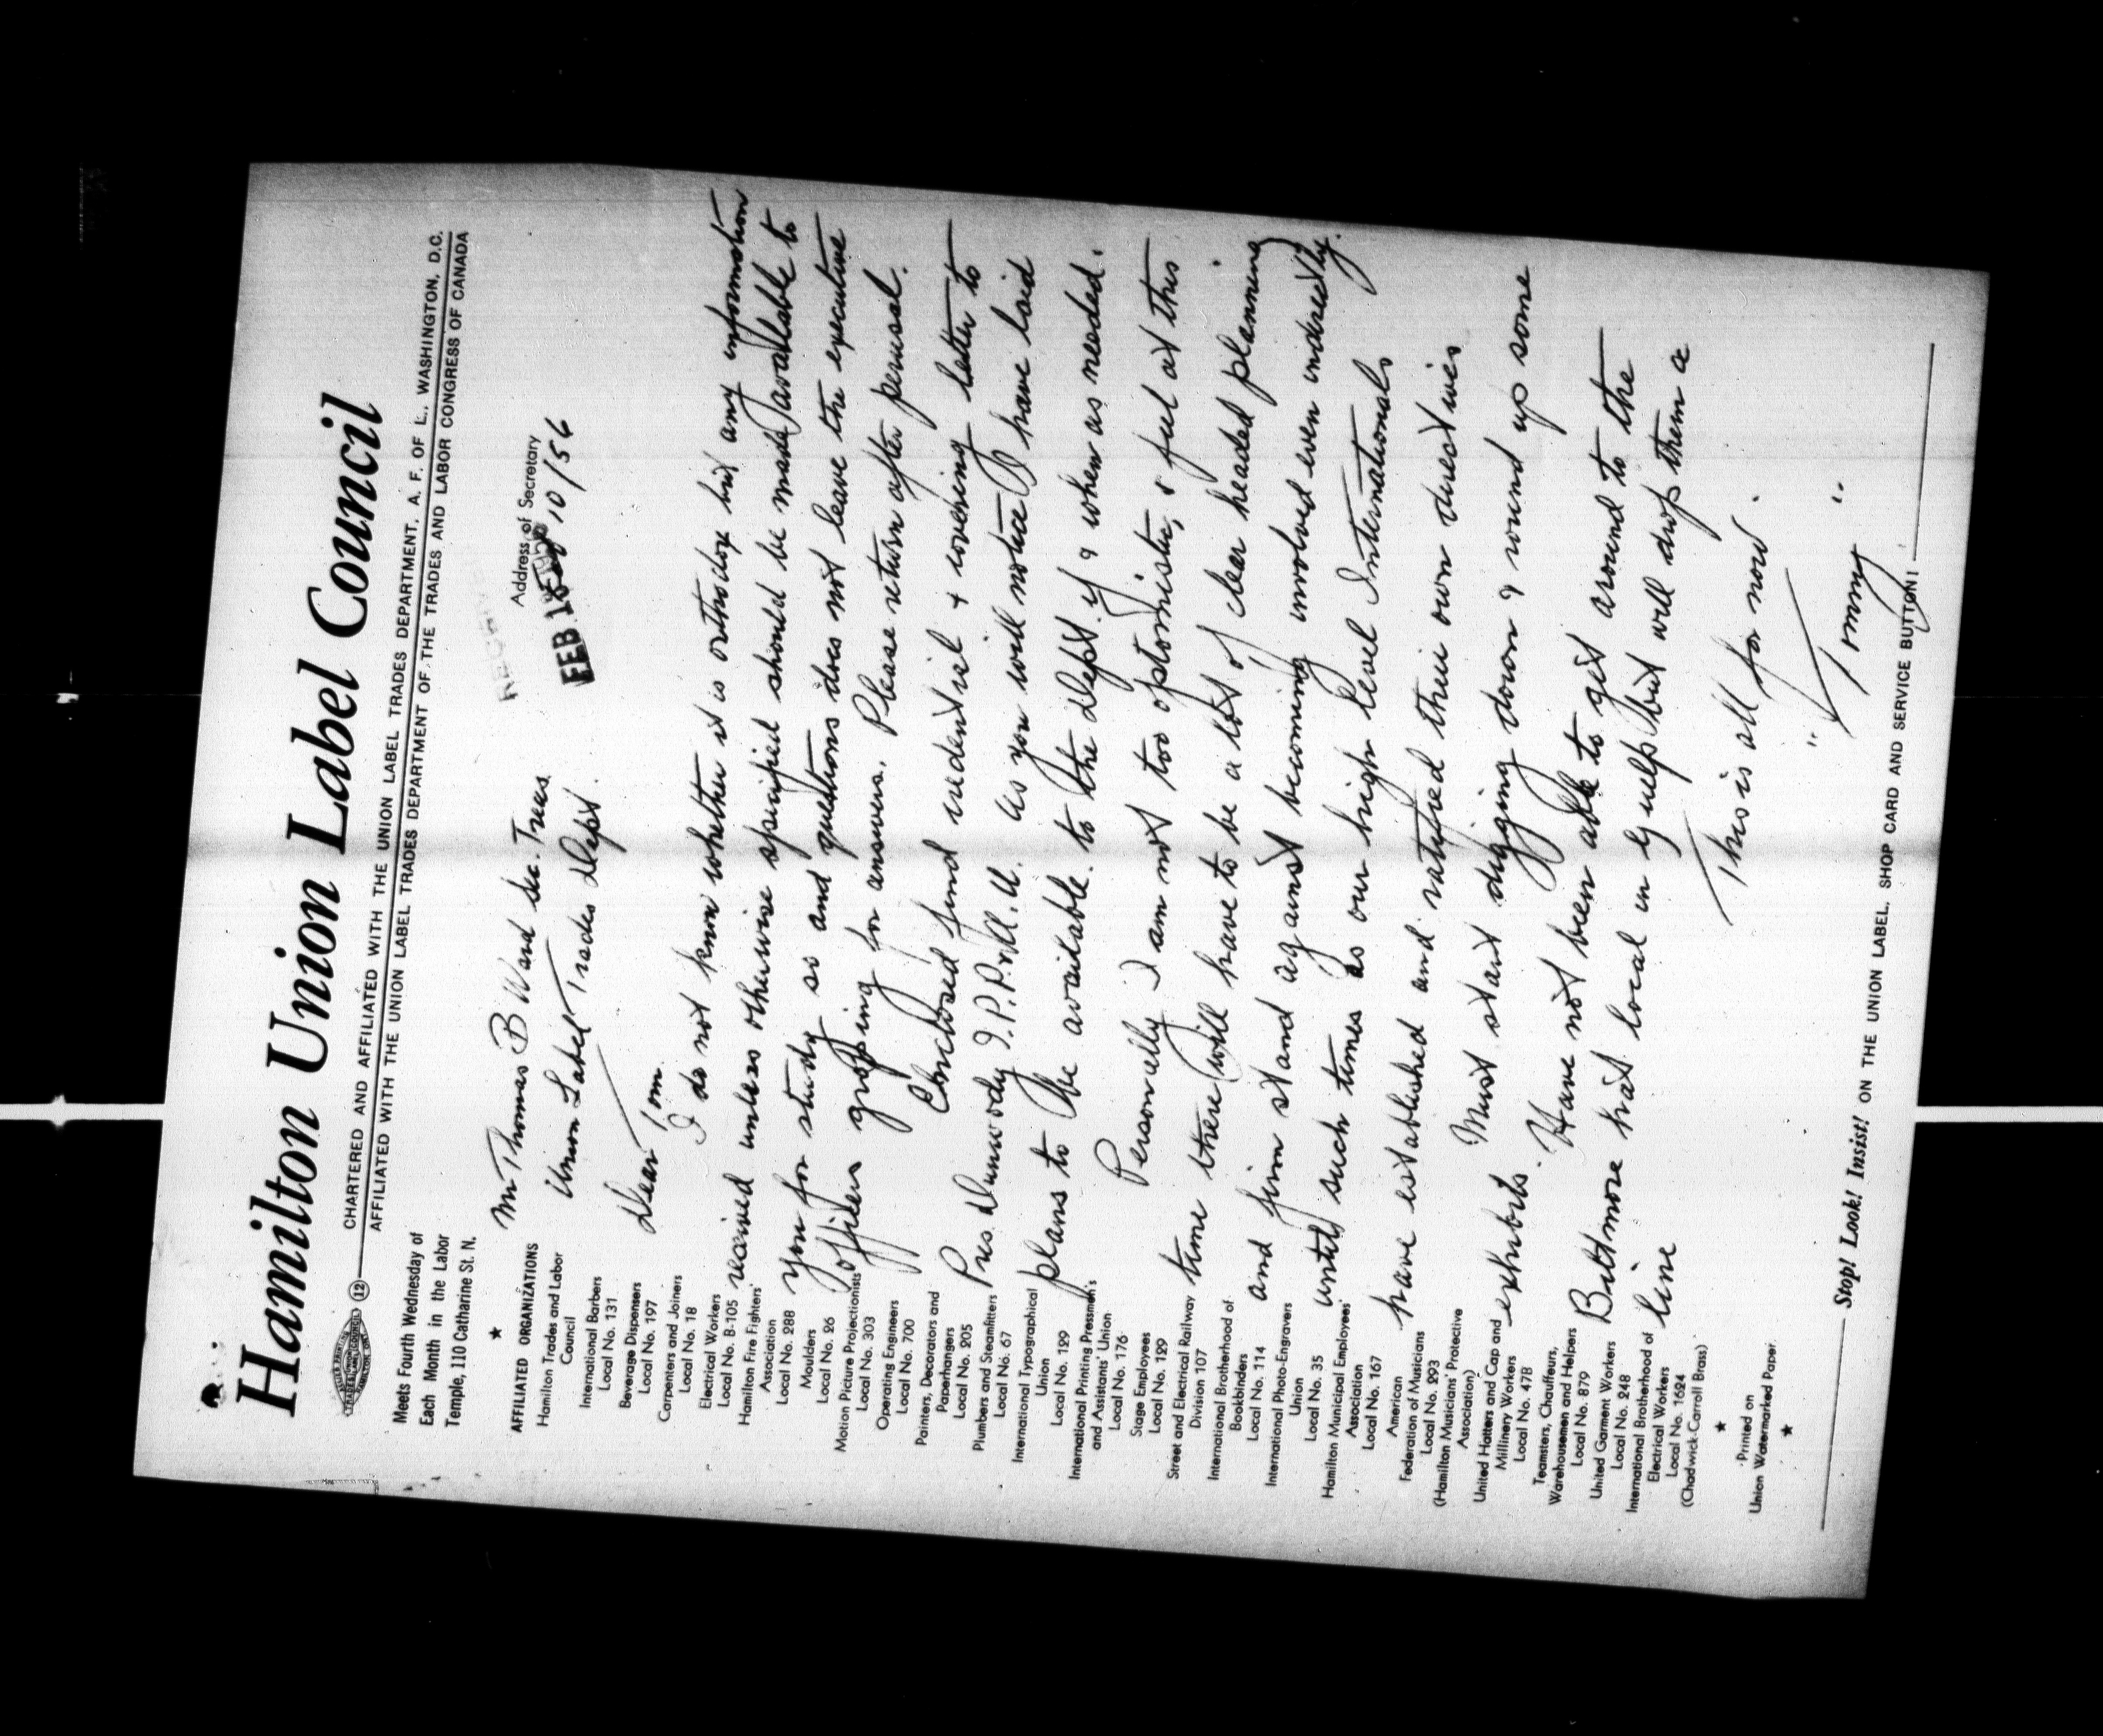 Hamilton Union Label Council
12
CHARTERED AND AFFILIATED WITH THE UNION LABEL TRADES DEPARTMENT, A. F. OF L., WASHINGTON, D.C.
AFFILIATED WITH THE UNION LABEL TRADES DEPARTMENT OF THE TRADES AND LABOR CONGRESS OF CANADA
Meets Fourth Wednesday of
Each Month in the Labor
Temple, 110 Catharine St. N.
★
AFFILIATED ORGANIZATIONS
Hamilton Trades and Labor
Council
International Barbers
Local No. 131
Beverage Dispensers
Local No. 197
Carpenters and Joiners
Local No. 18
Electrical Workers
Local No. B-105
Hamilton Fire Fighters'
Association
Local No. 288
Moulders
Local No. 26
Motion Picture Projectionists
Local No. 303
Operating Engineers
Local No. 700
Painters, Decorators and
Paperhangers
Local No. 205
Plumbers and Steamfitters
Local No. 67
International Typographical
Union
Local No. 129
International Printing Pressmen's
and Assistants' Union
Local No. 176
Stage Employees
Local No. 129
Street and Electrical Railway
Division 107
International Brotherhood of
Bookbinders
Local No. 114
International Photo-Engravers
Union
Local No. 35
Hamilton Municipal Employees'
Association
Local No. 167
American
Federation of Musicians
Local No. 293
(Hamilton Musicians' Protective
Association)
United Hatters and Cap and
Millinery Workers
Local No. 478
Teamsters, Chauffeurs,
Warehousemen and Helpers
Local No. 879
United Garment Workers
Local No. 248
International Brotherhood of
Electrical Workers
Local No. 1624
(Chadwick-Carroll Brass)
★
Printed on
Union Watermarked Paper
★
Address of Secretary
RECEIVED
FEB 15
10/56
Mr Thomas B Ward Sec. Treas.
Union Label Trades Dept.
Dear Tom
I do not know whether it is orthodox but any information
received unless otherwise specified should be made available to
you for study so and questions does not leave the executive
officers groping for answers. Please return after perusal.
Enclosed find credential & covering letter to
Pres. Dunwody I.P.P.&A.U. As you will notice I have laid
plans to be available to the Dept. if & when as needed.
Personally I am not too optomistic, & feel at this
time there will have to be a lot of clear headed planning
and firm stand against becoming involved even indirectly.
until such times as our high level Internationals
have established and ratified their own directives
Must start digging down & round up some
exhibits. Have not been able to get around to the
Biltmore hat local in Guelph but will drop them a
line
This is all for now.
"Tommy"
Stop! Look! Insist! ON THE UNION LABEL, SHOP CARD AND SERVICE BUTTON!